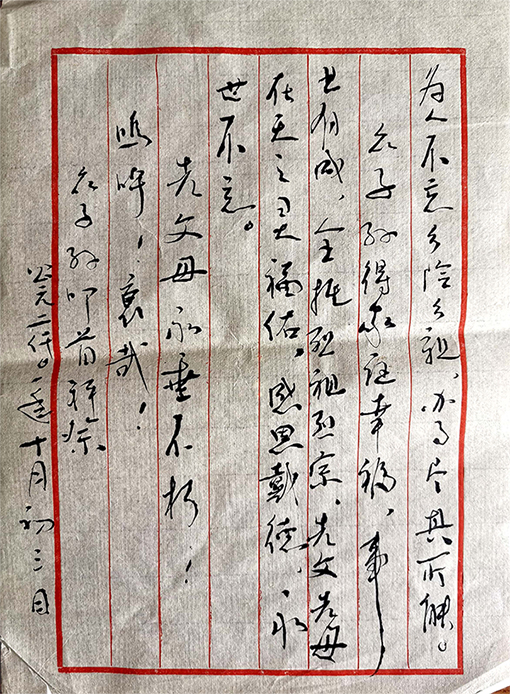 为人不忘公陰公祖,亦可尽其所能。
众子孙得家庭幸福、事
业有成,全托烈祖烈宗、先父先母
在天之灵福佑,感恩戴德、永
世不忘。
先父母永垂不朽!
呜呼!哀哉!
众子孙叩首拜祭
公元二〇一〇年十月初三日